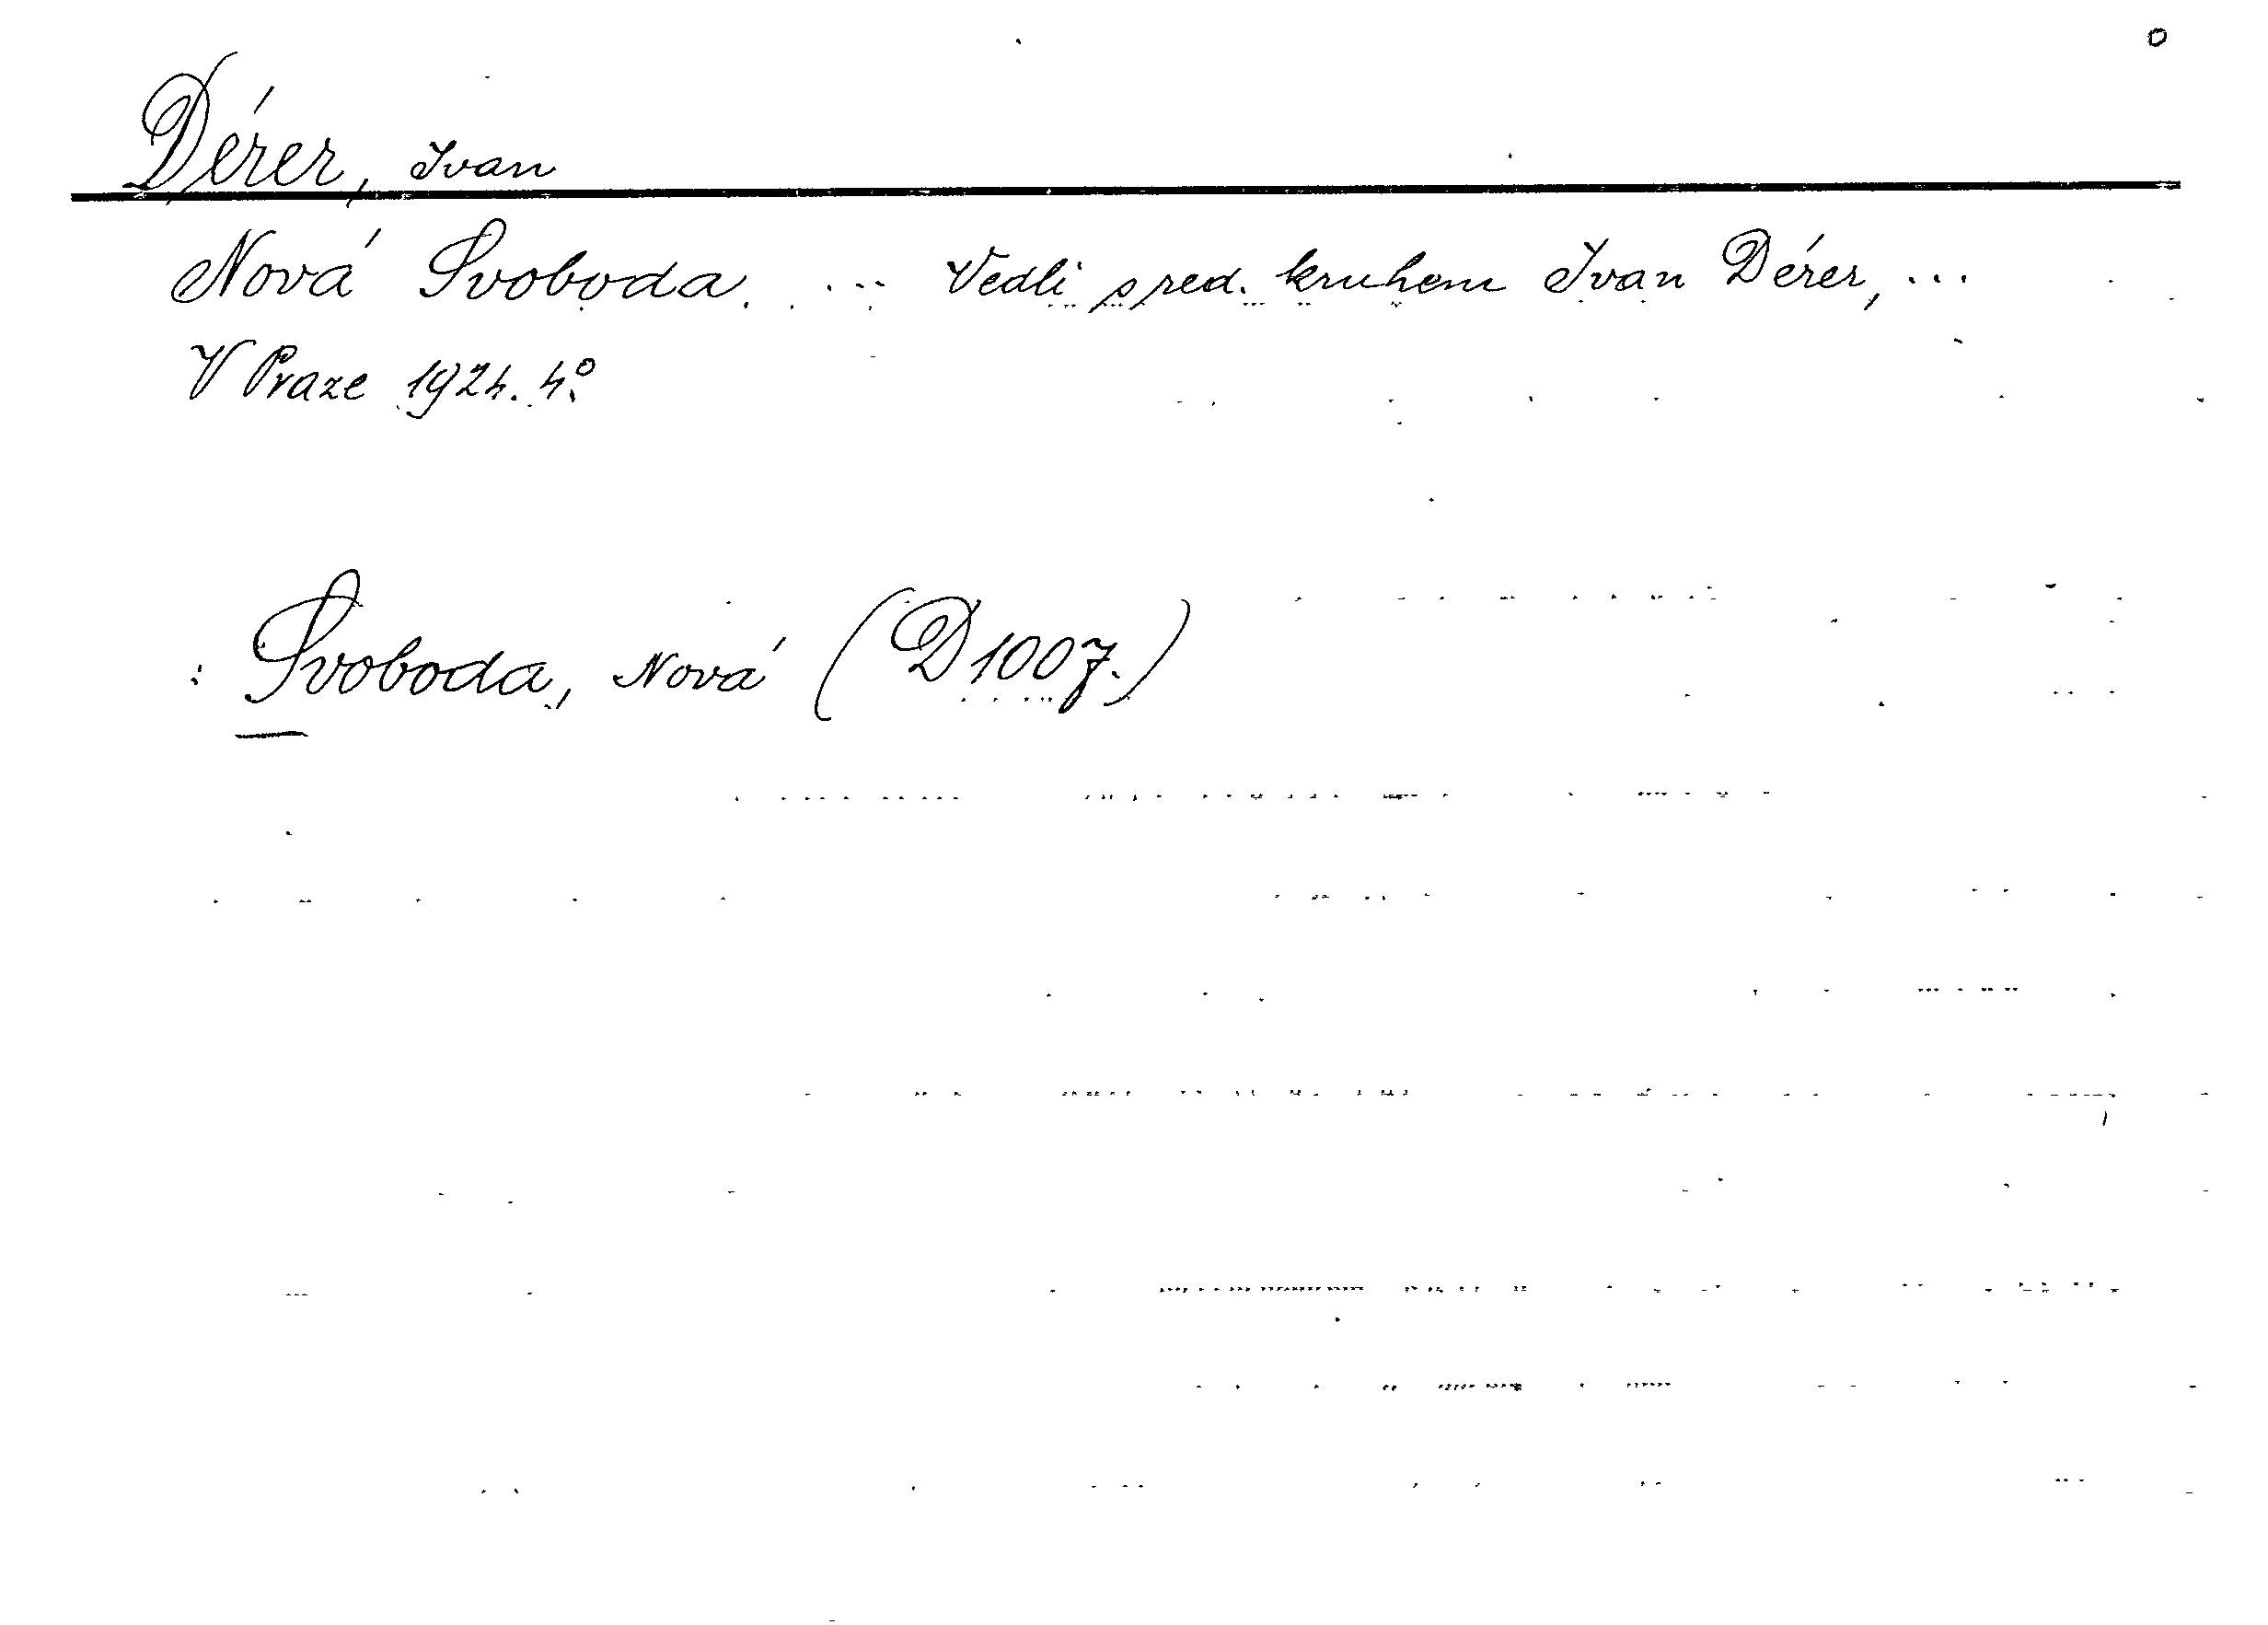 Dérer, Ivan
Nová Svoboda. ... Vedli s red. kruhem Ivan Dérer, ...
V Praze 1924. 4°.
: Svoboda, Nová (D 1007.)